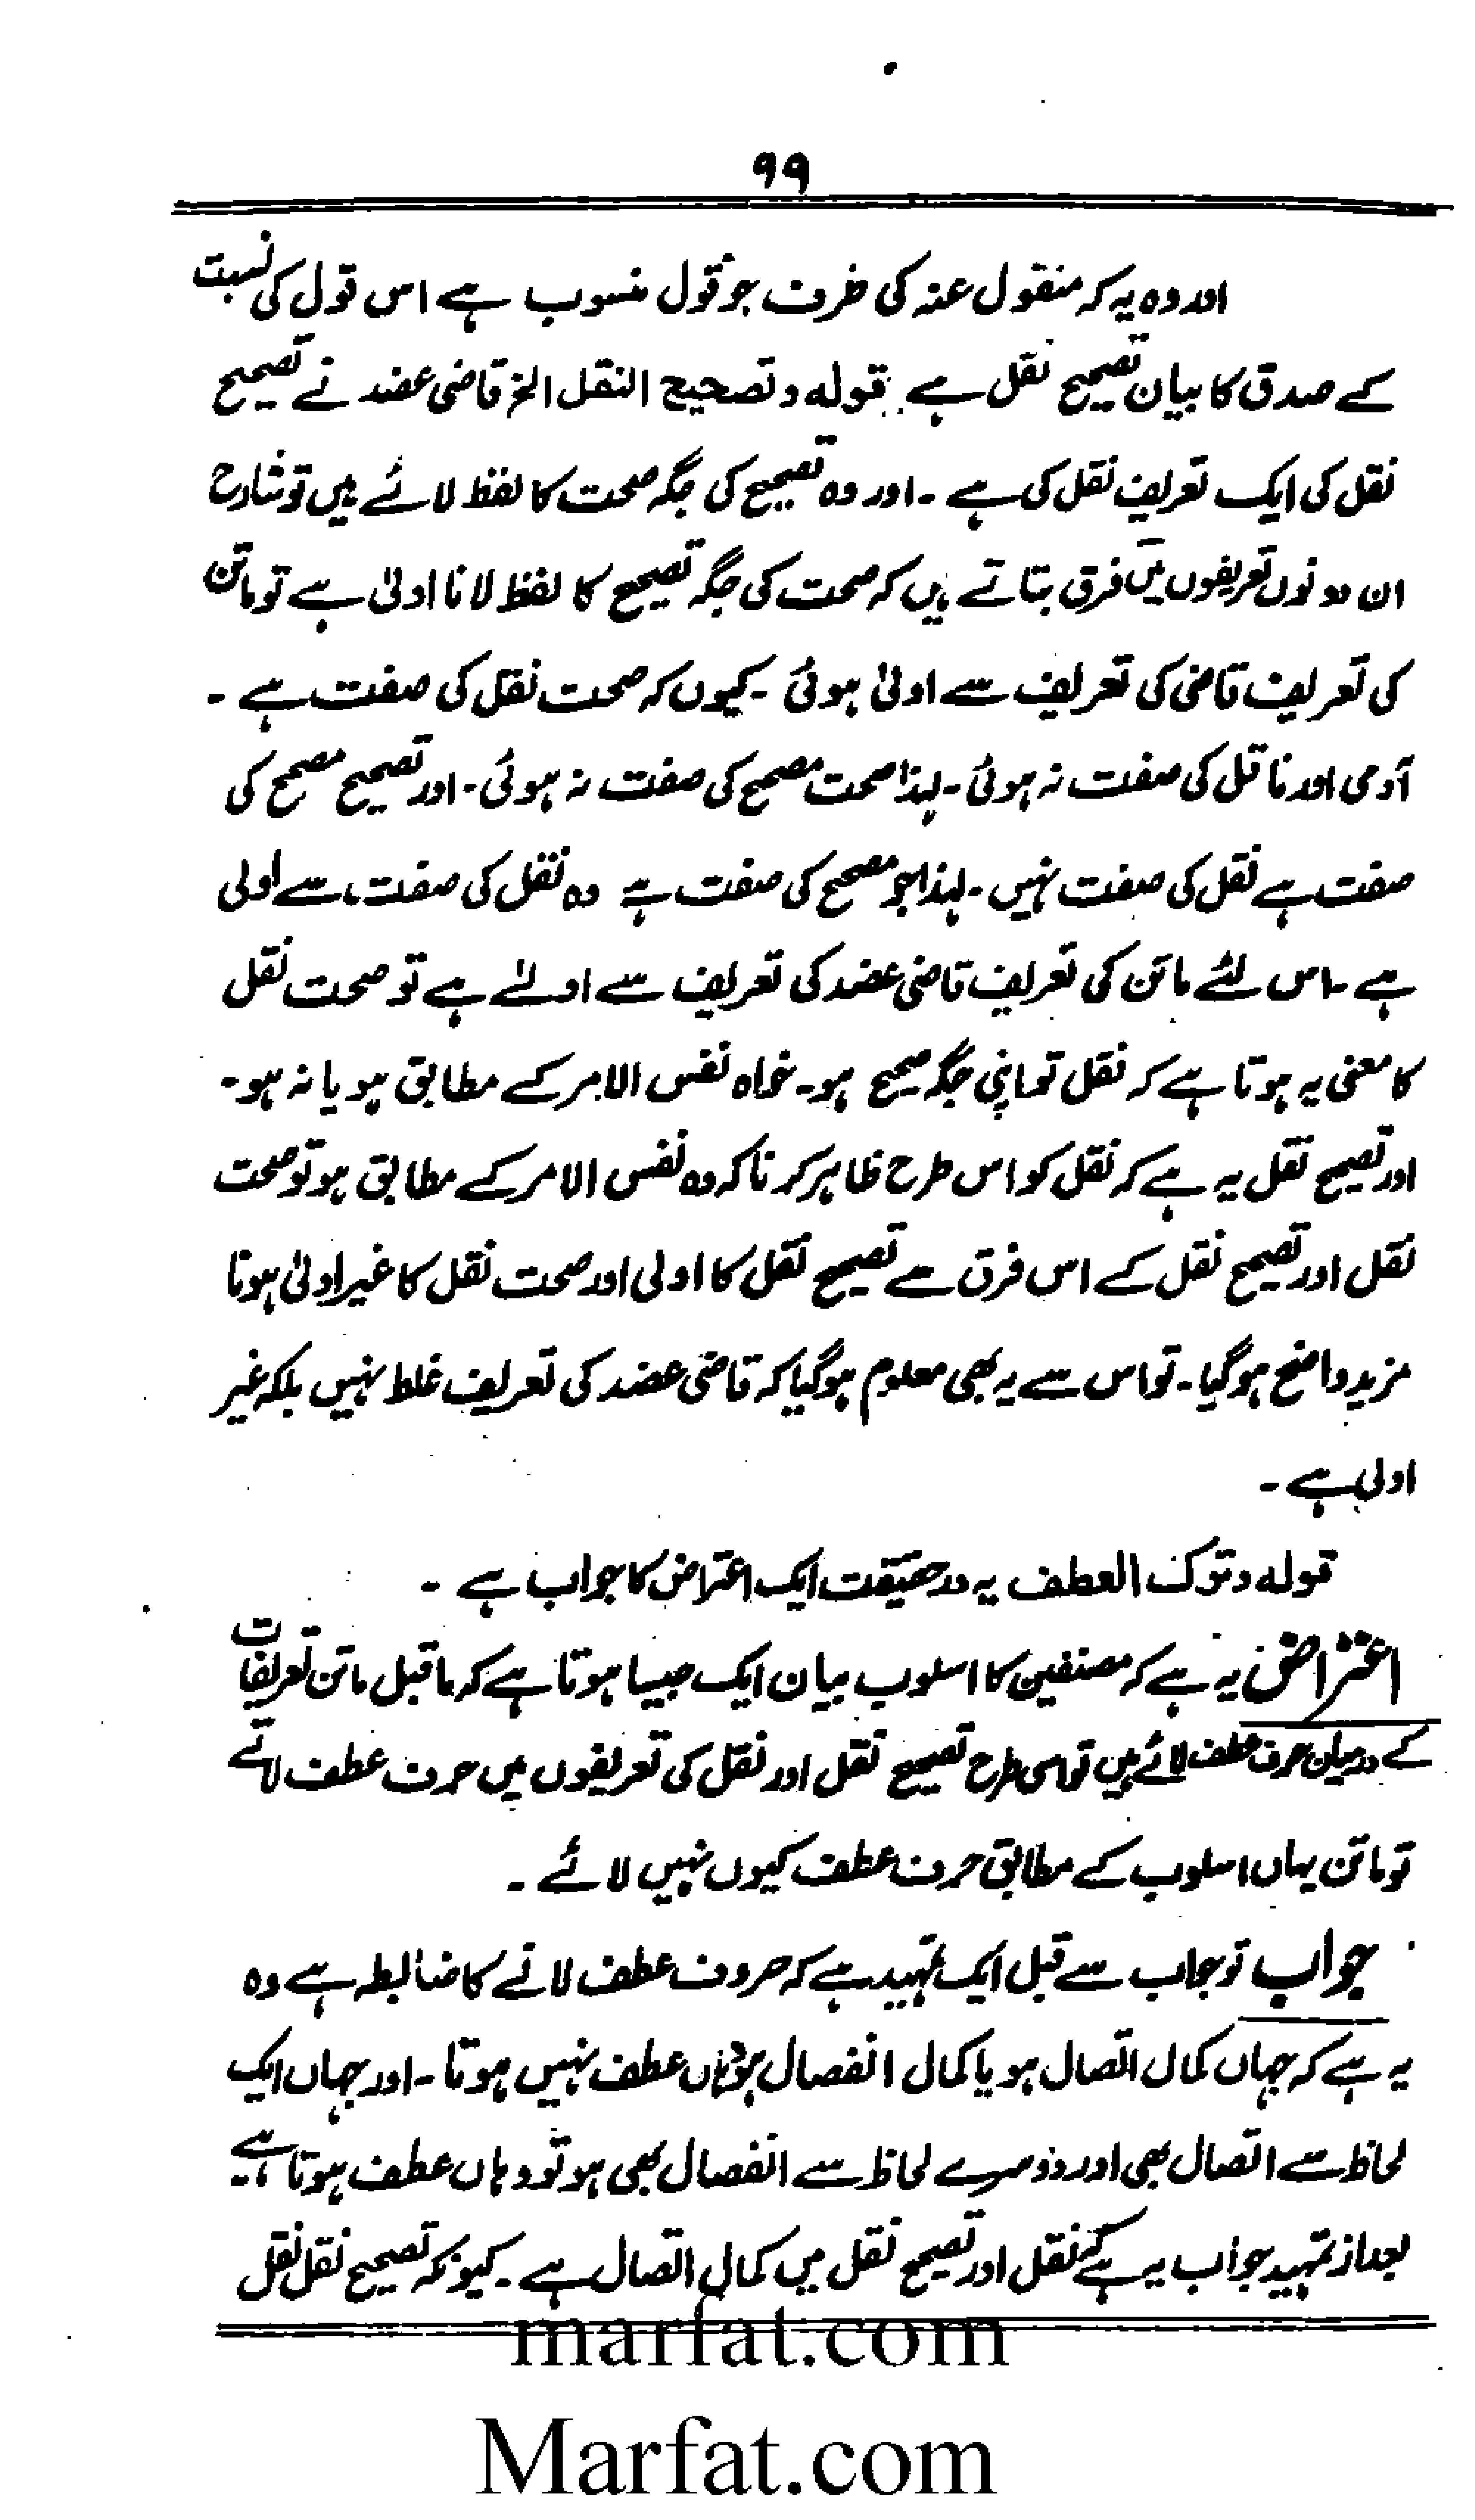 ۹۹
اور وہ یہ کہ منقول عنہ کی طرف جو قول منسوب ہے اس قول کی نسبت
کے صدق کا بیان تصحیح نقل ہے۔ قولہ وتصحیح النقل الخ قاضی عضد نے تصحیح
نقل کی ایک تعریف نقل کی ہے ۔ اور وہ تصحیح کی جگہ صحت کا لفظ لائے ہیں تو شارح
ان دونوں تعریفوں میں فرق بتاتے ہیں کہ صحت کی جگہ تصحیح کا لفظ لانا اولیٰ ہے تو ماتن
کی تعریف قاضی کی تعریف سے اولیٰ ہوئی ۔ کیوں کہ صحت نقل کی صفت ہے ۔
آدمی اور ناقل کی صفت نہ ہوئی ۔ لہذا صحت مصحح کی صفت نہ ہوئی ۔ اور تصحیح مصحح کی
صفت ہے نقل کی صفت نہیں ۔ لہذا جو مصحح کی صفت ہے وہ نقل کی صفت سے اولی
ہے ۔ اس لئے ماتن کی تعریف قاضی عضد کی تعریف سے اولےٰ ہے تو صحت نقل
کا معنی یہ ہوتا ہے کہ نقل تو اپنی جگہ صحیح ہو ۔ خواہ نفس الامر کے مطابق ہو یا نہ ہو ۔
اور تصحیح نقل یہ ہے کہ نقل کو اس طرح ظاہر کرنا کہ وہ نفس الامر کے مطابق ہو تو صحت
نقل اور تصحیح نقل کے اس فرق سے تصحیح نقل کا اولی اور صحت نقل کا غیر اولیٰ ہونا
مزید واضح ہوگیا ۔ تو اس سے یہ بھی معلوم ہوگیا کہ قاضی عضد کی تعریف غلط نہیں بلکہ غیر
اولی ہے ۔
قولہ وترک العطف یہ درحقیقت ایک اعتراض کا جواب ہے ۔
اعتراض یہ ہے کہ مصنفین کا اسلوب بیان ایک جیسا ہوتا ہے کہ ماقبل ماتن تعریفات
کے درمیان حرف عطف لائے ہیں تو اسی طرح تصحیح نقل اور نقل کی تعریفوں میں حرف عطف لاتے
تو ماتن یہاں اسلوب کے مطابق حرف عطف کیوں نہیں لائے ۔
جواب تو جواب سے قبل ایک تمہید ہے کہ حروف عطف لانے کا ضابطہ ہے وہ
یہ ہے کہ جہاں کمال اتصال ہو یا کمال انفصال ہو وہاں عطف نہیں ہوتا ۔ اور جہاں ایک
لحاظ سے اتصال بھی اور دوسرے لحاظ سے انفصال بھی ہو تو وہاں عطف ہوتا ہے۔
بعد از تمہید جواب یہ ہے کہ نقل اور تصحیح نقل میں کمال اتصال ہے ۔ کیونکہ تصحیح نقل نقل
marfat.com
Marfat.com